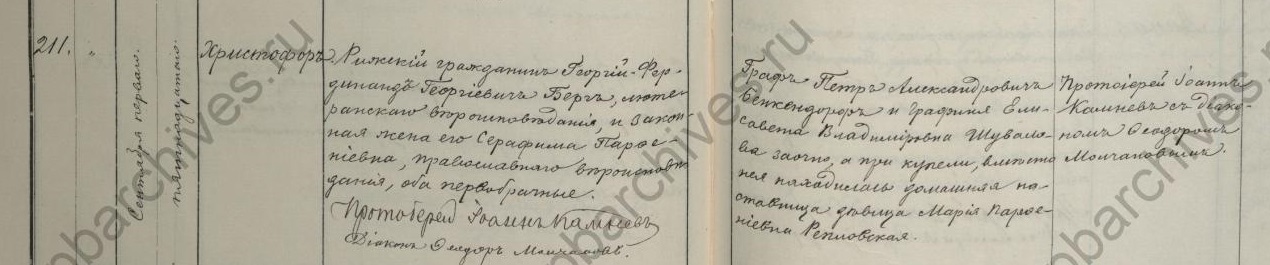 211.
"
Сентября перваго.
пятнадцатаго.
Христофоръ
Рижскій гражданинъ Георгій-Фер-
динандъ Георгіевичъ Бергъ, люте-
ранскаго вѣроисповѣданія, и закон-
ная жена его Серафима Парѳе-
ніевна, православнаго вѣроисповѣ-
данія, оба первобрачные.
Протоіерей Іоаннъ Камневъ
Діаконъ Ѳеодоръ
Графъ Петръ Александровичъ
Бенкендорфъ и Графиня Ели-
савета Владиміровна Шувало-
ва заочно, а при купели, вмѣсто
нея находилась домашняя на-
ставница дѣвица Марія Парѳе-
ніевна Репловская.
Протоіерей Іоаннъ
Камневъ съ діако-
номъ Ѳеодоромъ
obarchives.ru
obarchives.ru